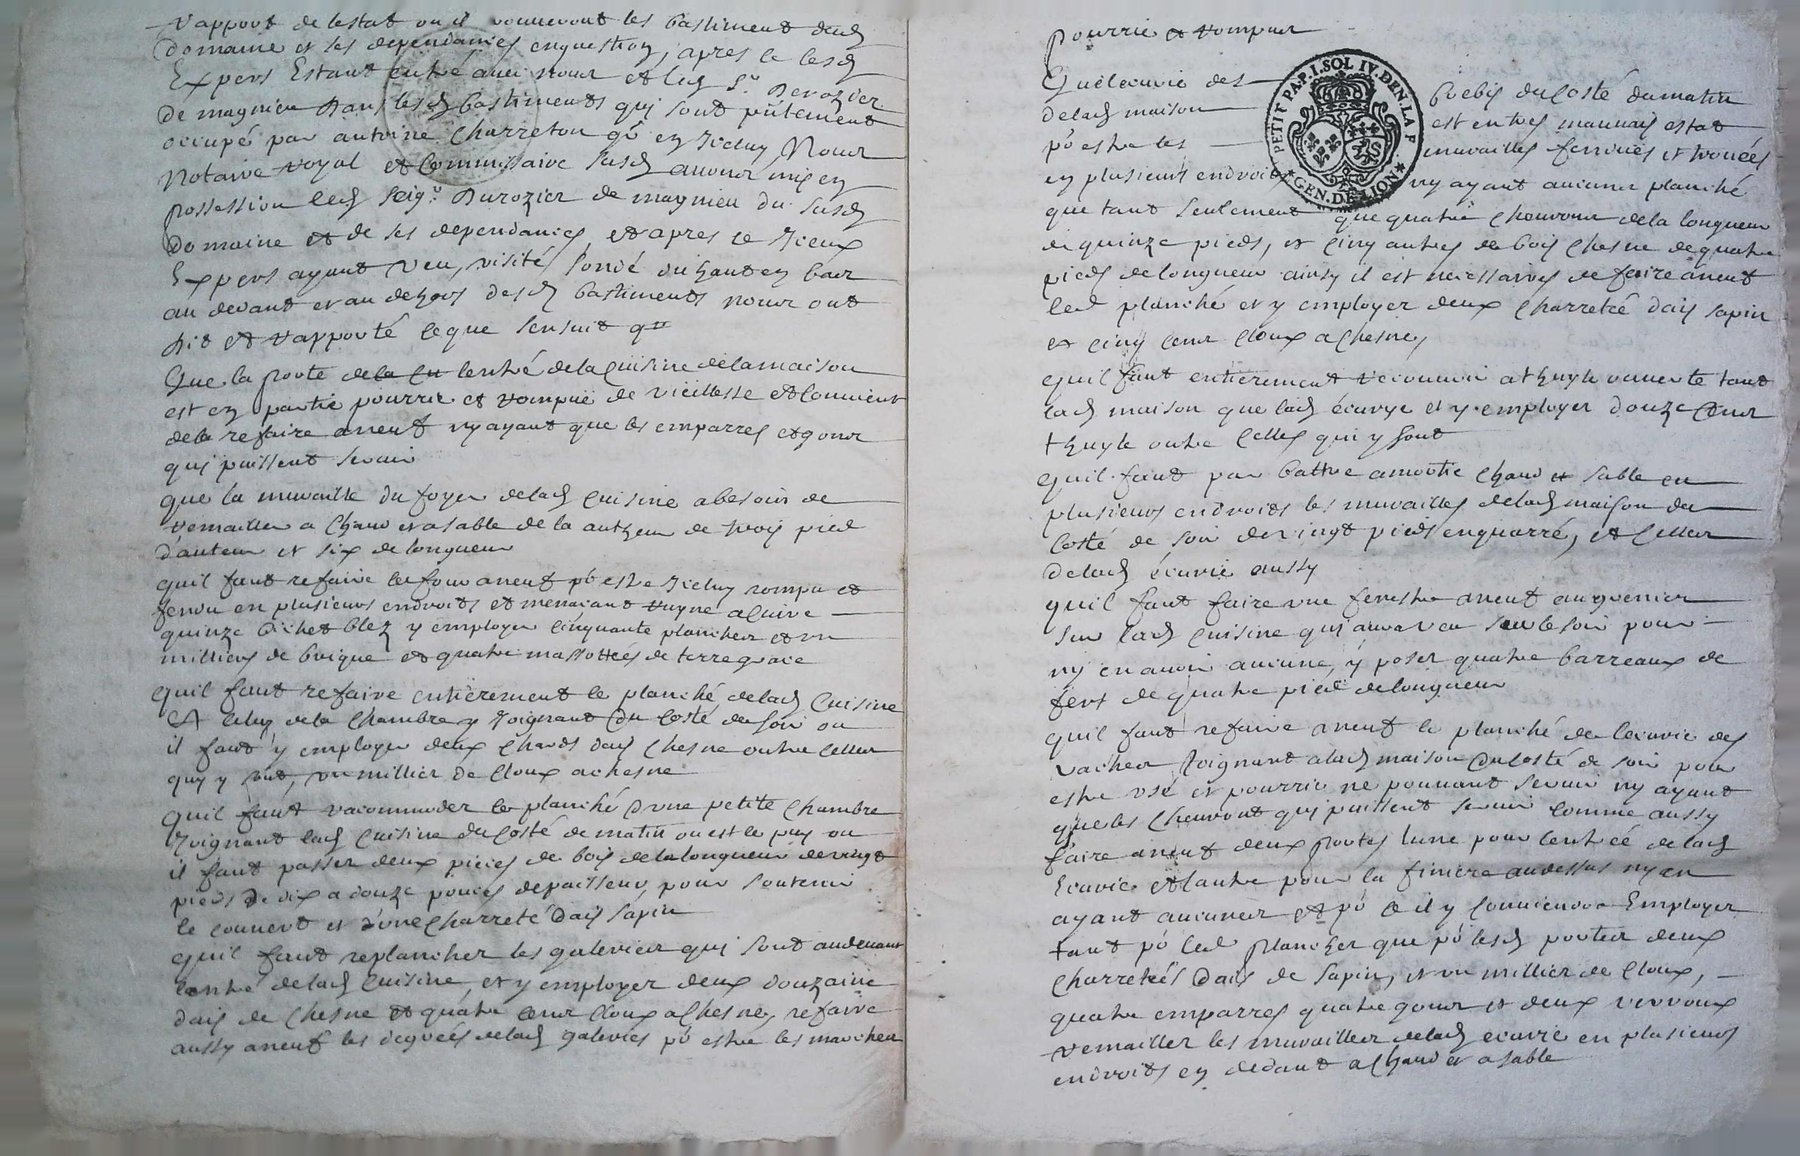 rapport de lestat ou il trouveront les bastiments dud
domaine et ses dependances enquestion, apres ce lesd
Expers Estant entré avec nous et led Sr. Durozier
de magnieu dans lesd bastiments qui sont pntement
occupé par antoine Charreton gé en Iceluy Nous
Notaire royal et Commissaire susd avons mis en
possession led seigr. Durozier de magnieu du susd
domaine et de ses dependances, et apres ce Iceux
Expers ayant veu, visité, sondé du haut en bas
au dedant et au dehors desd bastiments nous ont
dit et rapporté ce que sensuit
Que la porte de la cu lentré de la Cuisine de la maison
est en partie pourrie et rompuë de vieillesse et convient
de la refaire a neuf ny ayant que les emparres et gons
qui puissent servir
que la muraille du foyer de lad Cuisine a besoin de
remailler a Chaux et a sable de la autheur de trois pied
dauteur et six de longueur
quil faut refaire le four a neuf po estre Iceluy rompu et
fendu en plusieurs endroits et menaçant ruyne a cuire
quinze bichet blez y employer Cinquante planches et un
milliers de brique et quatre massottées de terre grace
quil faut refaire entièrement le planché de lad Cuisine
et Celuy de la Chambre y Joignant du Costé de soir ou
il faut y employer deux Chards dais Chesne outre Celles
quy y sont, un millier de Cloux a chesne
quil faut racommoder le planché dune petite Chambre
Joignant lad Cuisine du Costé de matin ou est le puy ou
il faut passer deux pieces de bois de la longueur de vingt
pieds de dix a douze pouces depaisseur, pour soutenir
le couvert et dune Charreté dais sapin
quil faut replancher les galeries qui sont au devant
lentré de lad Cuisine, et y employer deux douzaine
dais de Chesne et quatre Cens Cloux a Chesne, refaire
aussy a neuf les degrées de lad galeries po estre les marches
pourrie et rompues
Quelecurie des brebis du Costé du matin
de lad maison est en tres mauvais estat
po estre les murailles fendues et trouées
en plusieurs endroits ny ayant aucuns planché
que tant seulement que quatre Chevrons de la longueur
de quinze pieds, et Cinq autres de bois Chesne de quatre
pieds de longueur ainsy il est necessaires de faire a neuf
led planché et y employer deux Charretée dais sapin
et Cinq Cens Cloux a Chesne,
quil faut entièrement recouvrir a thuyle ouverte tant
lad maison que lad écurye et y employer douze Cens
thuyle outre Celles qui y sont
quil faut par battre a mortie Chaux et sable en
plusieurs endroits les murailles de lad maison du
Costé de soir de vingt pieds en quarré, et Celles
de lad écurie aussy
quil faut faire une fenestre a neuf au grenier
sur lad Cuisine qui aura veu sur le soir pour
ny en avoir aucune, y poser quatre barreaux de
fers de quatre pied de longueur
quil faut refaire a neuf le planché de lecurie des
vaches Joignant a lad maison du Costé de soir pour
estre usé et pourrie ne pouvant servir ny ayant
que les Chevront qui puissent servir Comme aussy
faire a neuf deux portes lune pour lentrée de lad
Ecurie et lautre pour la finiere au dessus ny en
ayant aucunes et po Ce il y Conviendra Employer
tant po led plancher que po lesd portes deux
Charretées dais de sapin, et un millier de Cloux,
quatre emparres quatre gons et deux verroux
remailler les murailles de lad écurie en plusieurs
endroits en dedant a Chaux et a sable
PETIT PA.P.I.SOL IV.DEN.LA F
GEN.DE LION